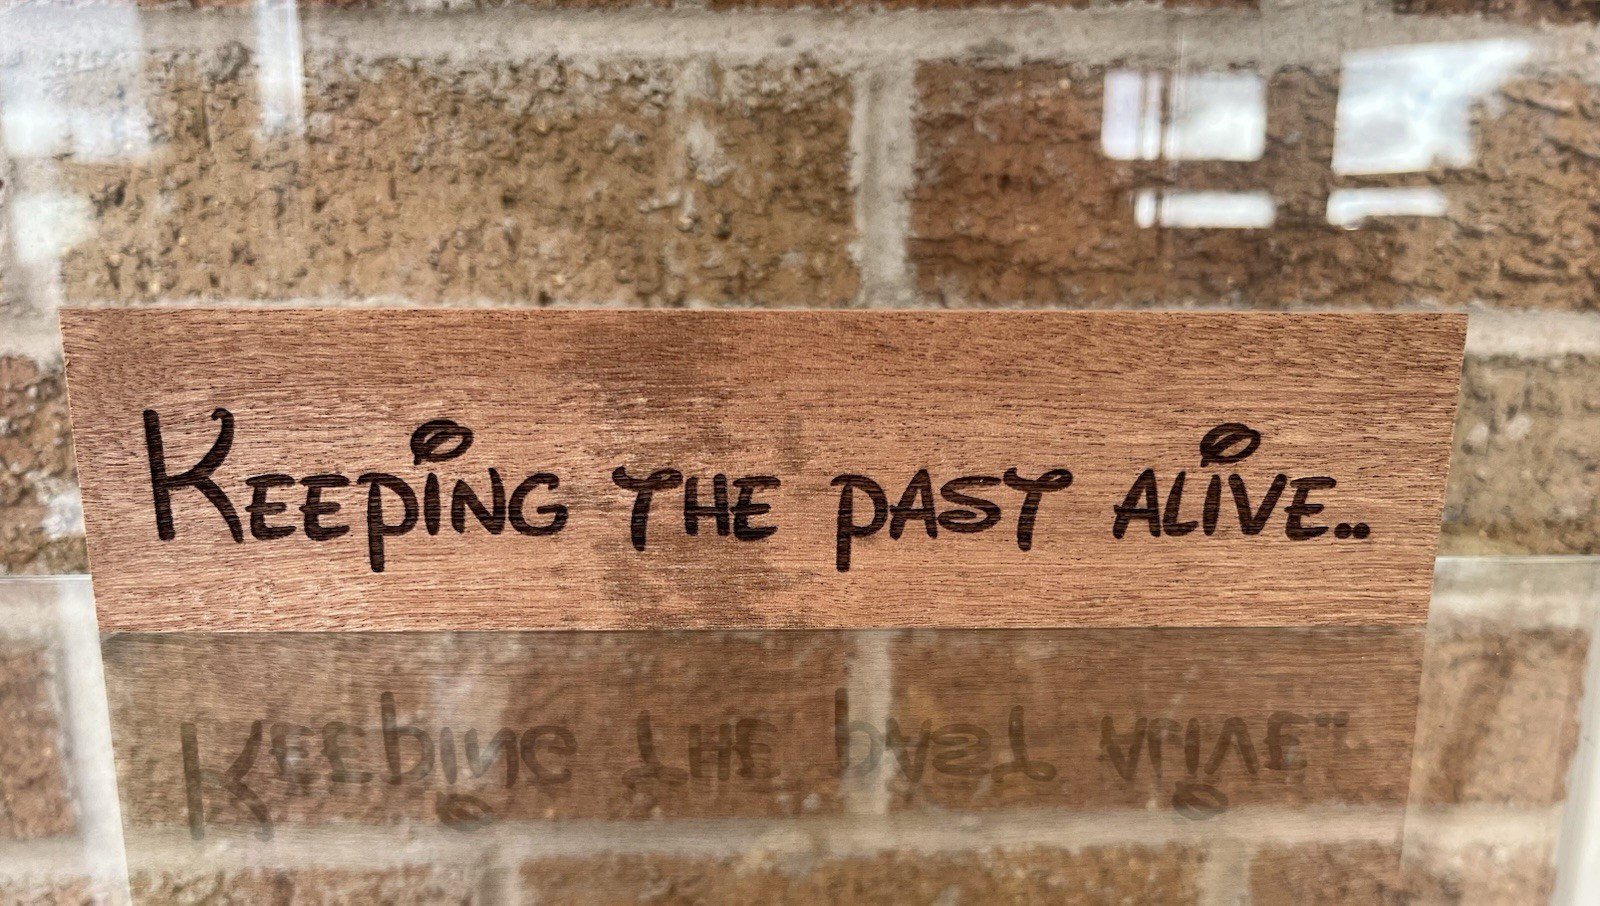 Keeping the past alive..